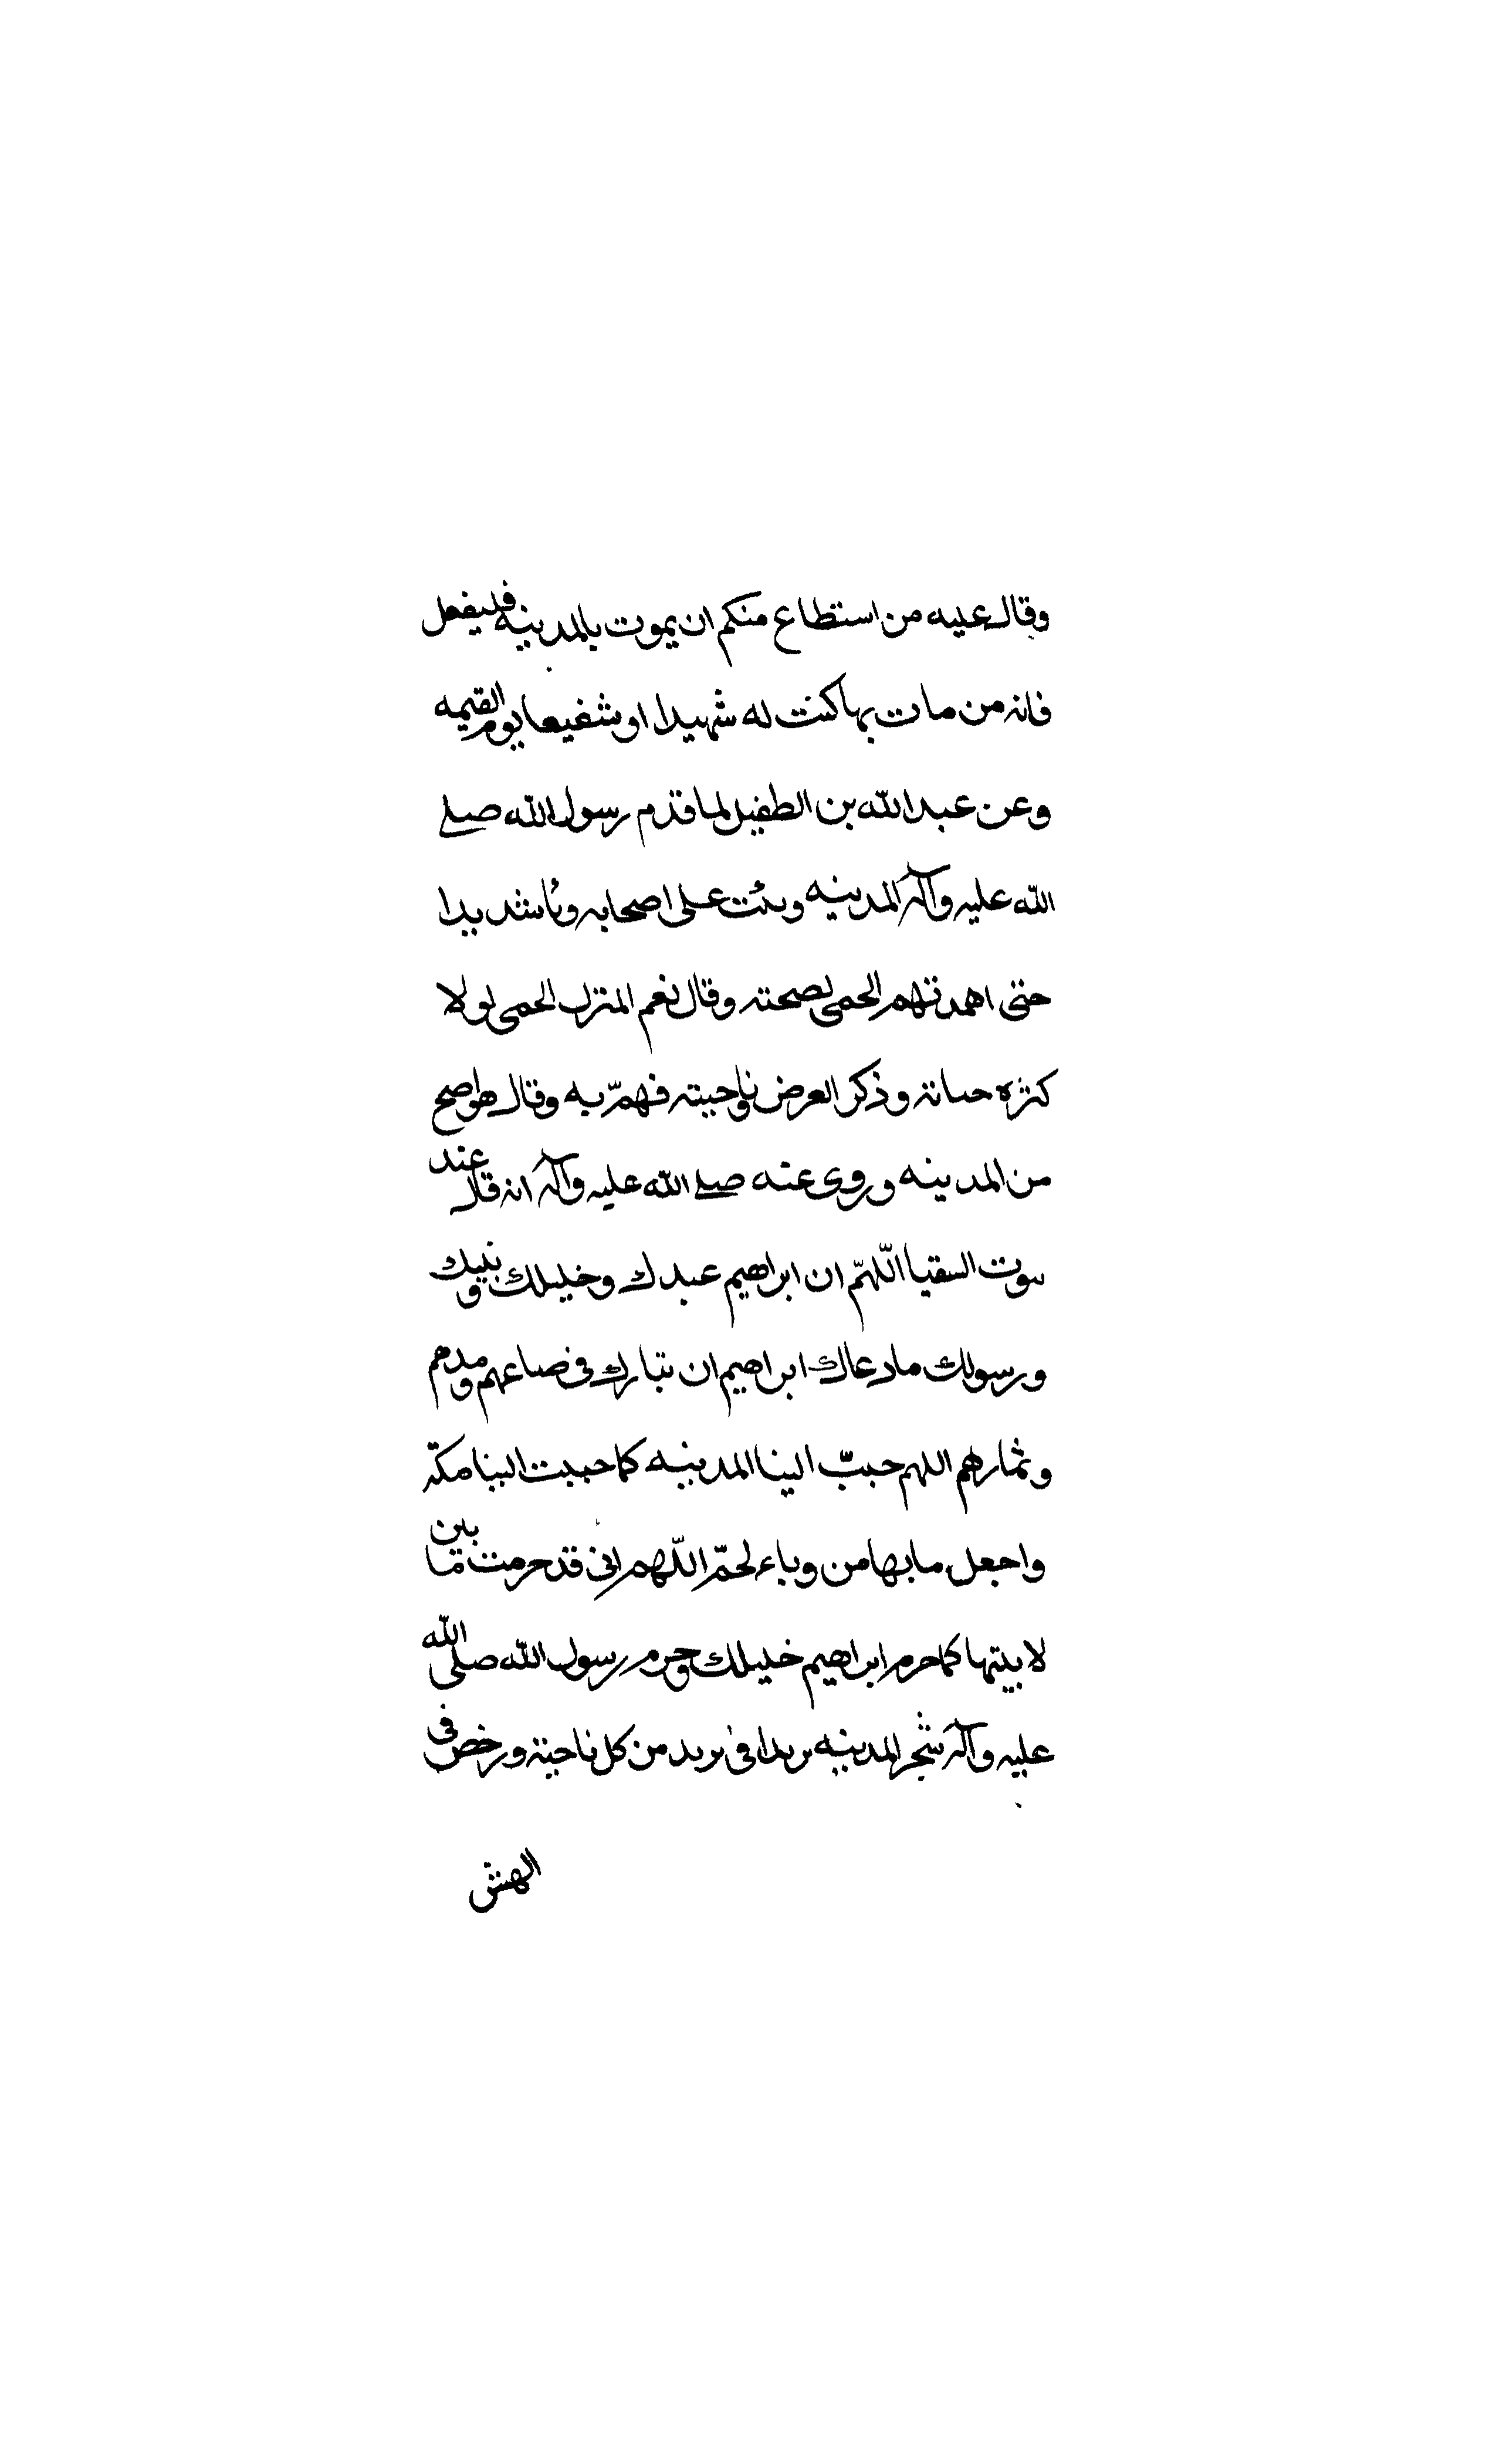 وقال عليه من استطاع منكم ان يموت بالمدينه فليفعل
فانه من مات بها كنت له شهيدا او شفيعا يوم القيمه
وعن عبد الله بن الطفيل لما قدم رسول الله صلے
الله عليه وآله المدينه وثبت على اصحابه وبأ شديدا
حتى اهمدتهم الحمى لصحته وقال نعم المنزل الحمى لولا
كثرة حياته وذكر العرض وناحيته فهمّ به وقال هواصح
من المدينه وروى عنه صلے الله عليه وآله انه قال عند
بيوت السقيا اللّهمّ ان ابراهيم عبدك وخليلك ونبيك
ورسولك مادعاك ابراهيم ان تبارك فى صاعهم ومدهم
وثمارهم اللهم حببّ الينا المدينه كما حببت الينا مكة
واجعل ما بها من وباء لحمّ اللّهم انى قد حرمت ما بين
لابيتها كما حرم ابراهيم خليلك وحرم رسول الله صلى الله
عليه وآله شجر المدينه بريدا فى بريد من كل ناحية ورخص فى
الهش